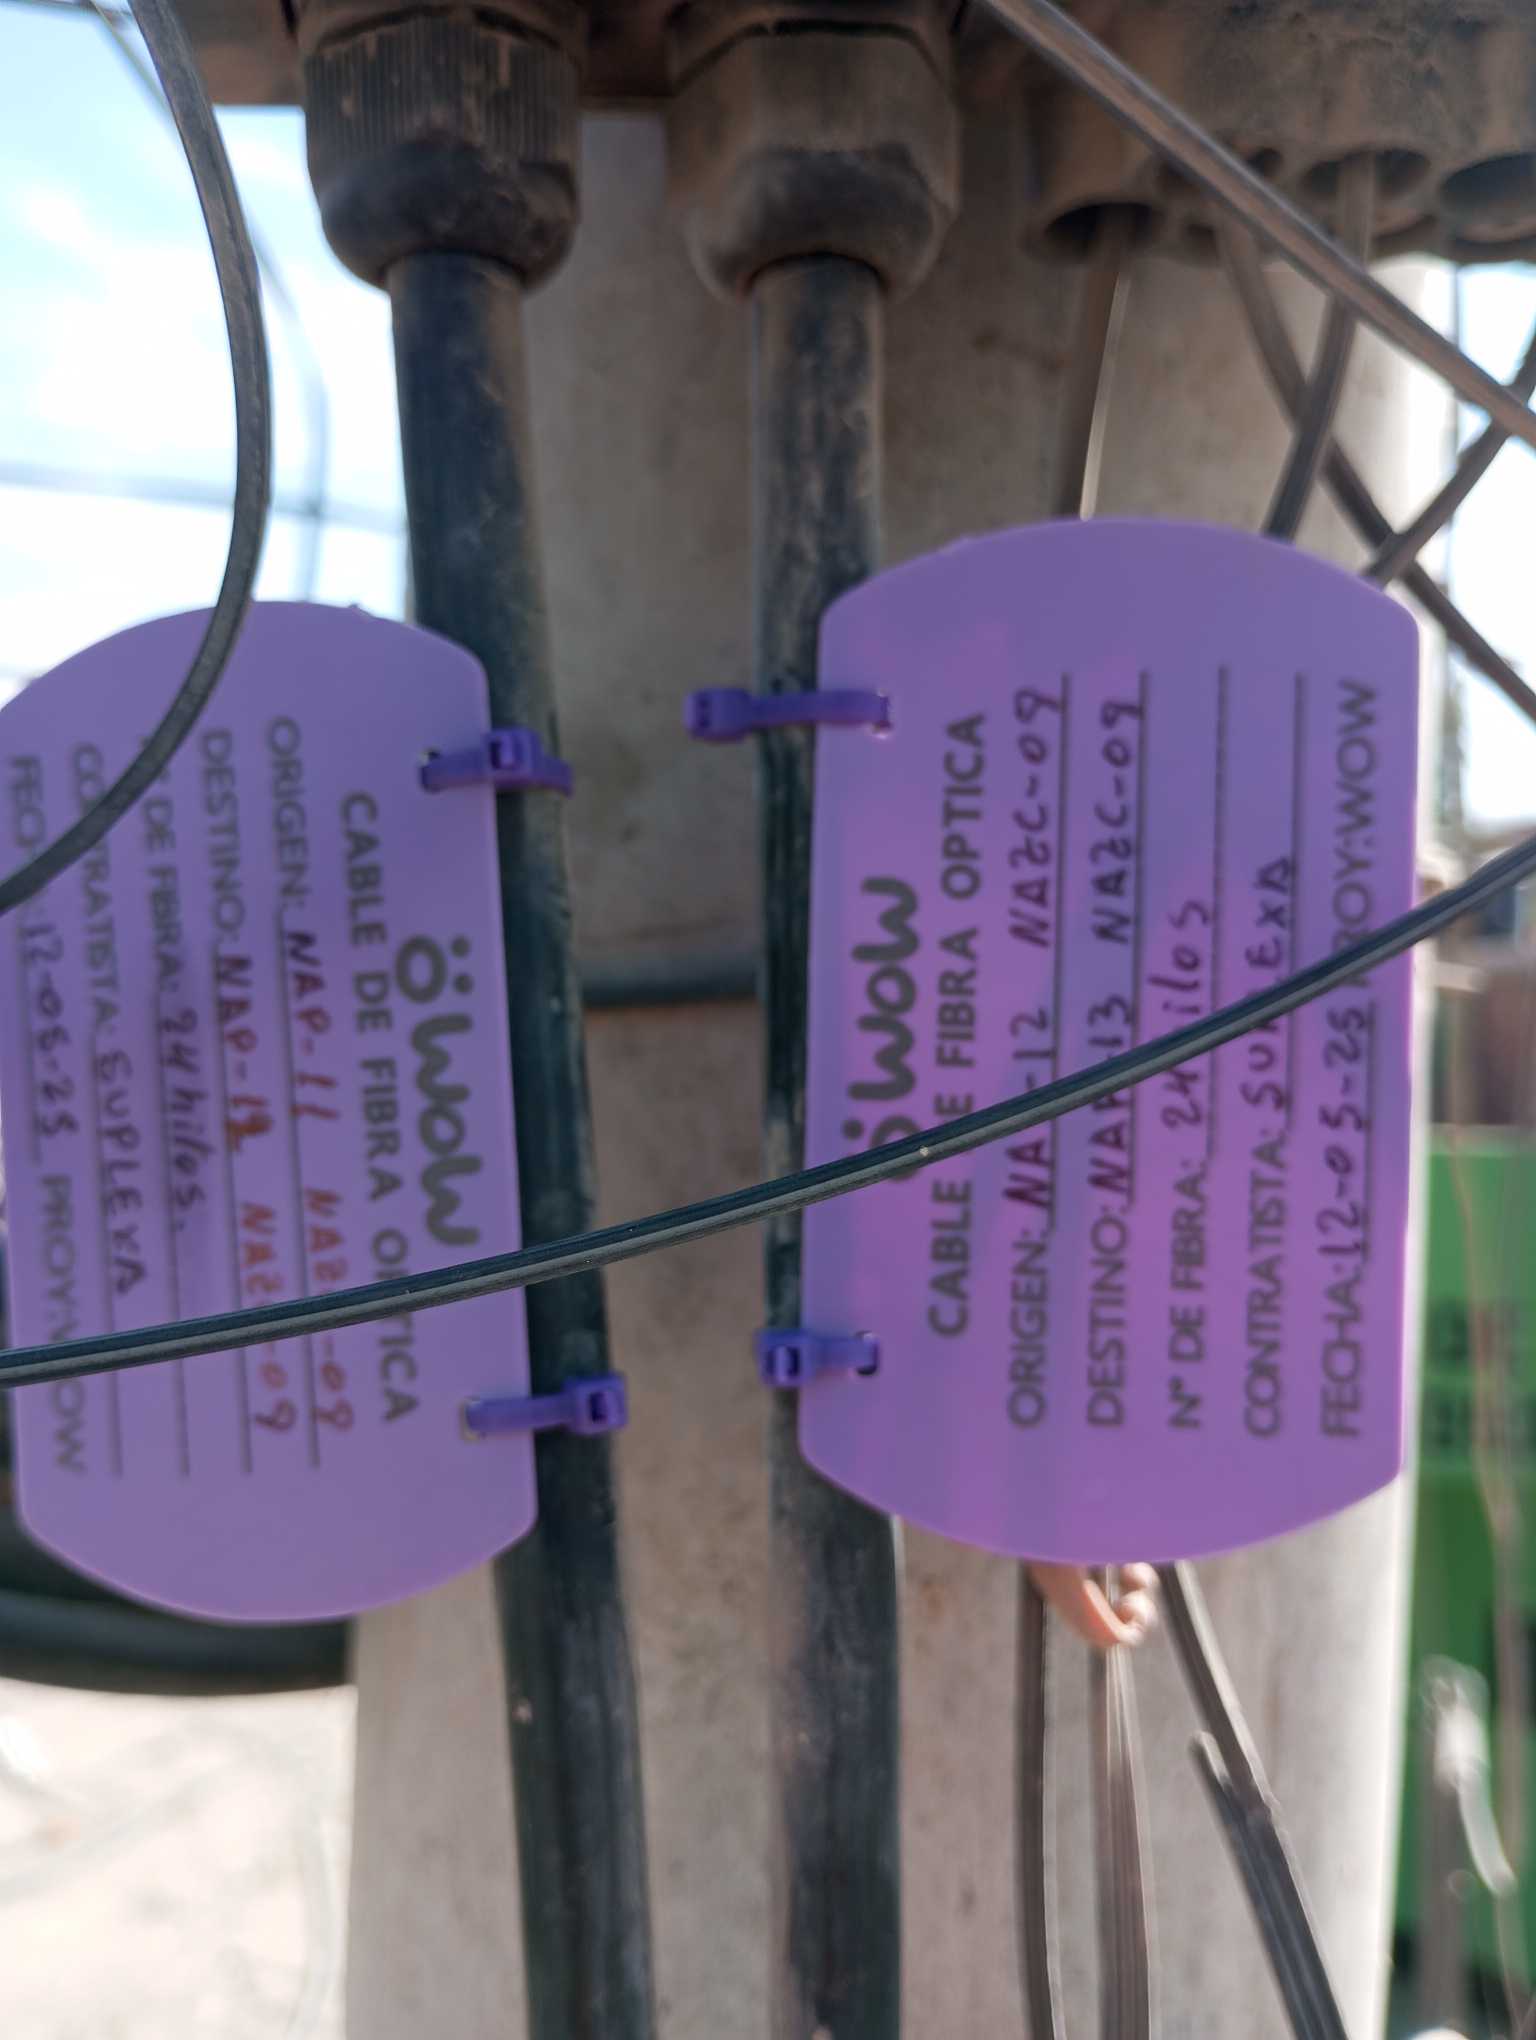 wow
CABLE DE FIBRA OPTICA
ORIGEN: NAP-11 NAZC-09
DESTINO: NAP-12 NAZC-09
N° DE FIBRA: 24 hilos.
CONTRATISTA: SUPLEXA
FECHA: 12-05-25 PROY:WOW
wow
CABLE DE FIBRA OPTICA
ORIGEN: NAP-12 NAZC-09
DESTINO: NAP-13 NAZC-09
N° DE FIBRA: 24 hilos
CONTRATISTA: SUPLEXA
FECHA: 12-05-25 PROY:WOW